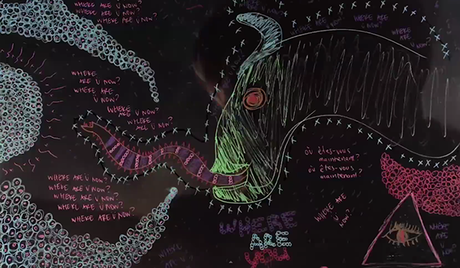 WHERE ARE U NOW?
WHERE ARE U NOW?
WHERE ARE U NOW?
WHERE
ARE U NOW?
WHERE
ARE U NOW?
WHERE ARE
U NOW?
WHERE ARE
U NOW?
WHERE
ARE U NOW?
WHERE ARE U NOW?
WHERE ARE U NOW?
WHERE ARE U NOW?
WHERE ARE U NOW?
WHERE ARE U NOW?
WHERE ARE
U NOW?
OÙ ÊTES-VOUS
MAINTENANT?
OÙ ÊTES-VOUS
MAINTENANT
WHERE ARE
U NOW?
WHERE
ARE
U NOW?
WHERE
ARE
YOU